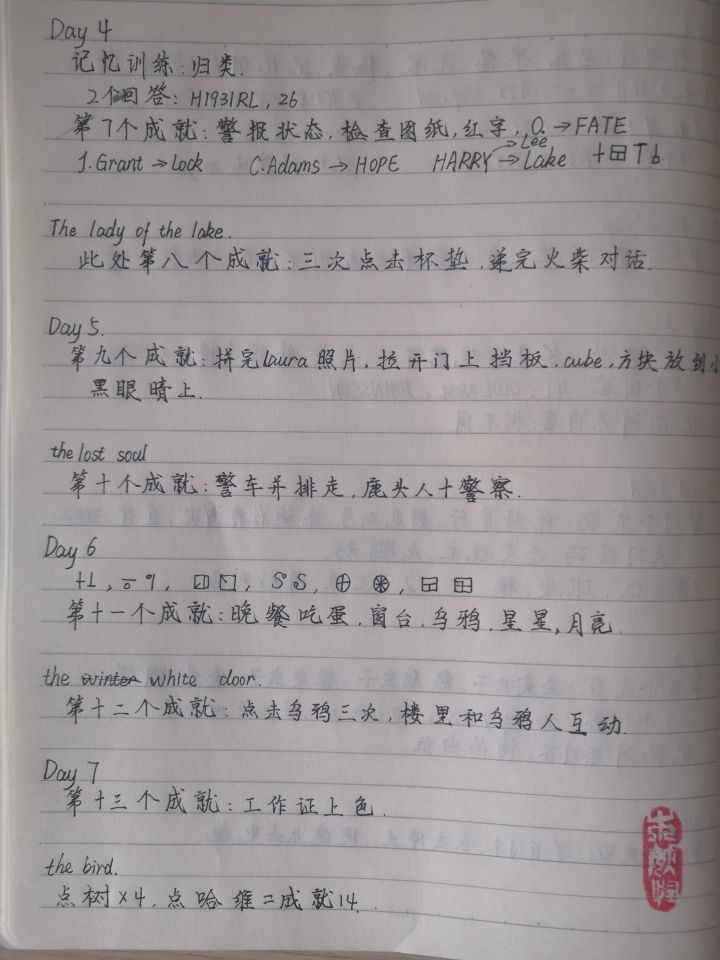 Day 4
记忆训练：归类.
2个回答：H1931RL, 26
第7个成就：警报状态,检查图纸,红字, O. →FATE
J.Grant → Lock C.Adams → HOPE HARRY → Lee → Lake
The lady of the lake.
此处第八个成就：三次点击杯垫,递完火柴对话.
Day 5.
第九个成就：拼完Laura照片,拉开门上挡板,cube,方块放到小
黑眼睛上.
the lost soul
第十个成就：警车并排走,鹿头人十警察.
Day 6
第十一个成就：晚餐吃蛋,窗台,乌鸦,星星,月亮.
the winter white door.
第十二个成就：点击乌鸦三次,楼里和乌鸦人互动.
Day 7
第十三个成就：工作证上色.
the bird.
点树×4,点哈维=成就14.